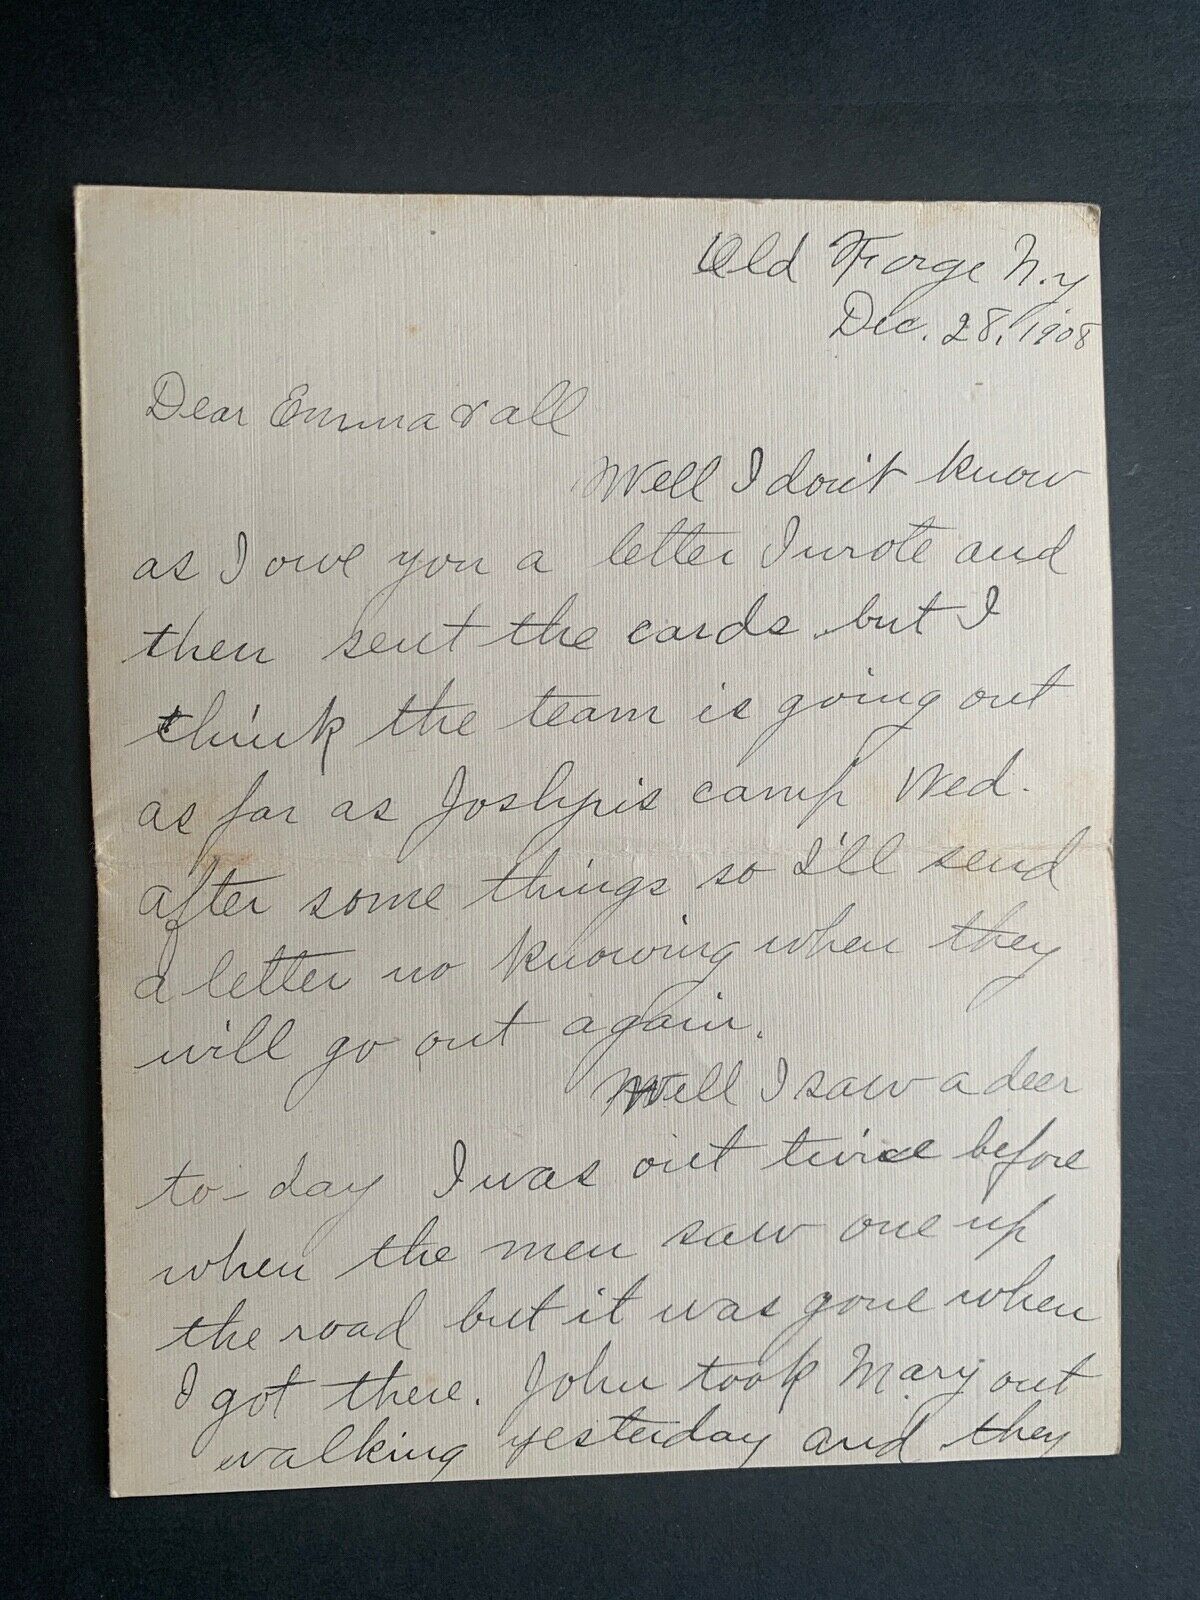 Old Forge N.y
Dec. 28, 1908
Dear Emma & all
Well I don't know
as I owe you a letter I wrote and
then sent the cards but I
think the team is going out
as far as camp Wed.
after some things so I'll send
a letter no knowing when they
will go out again.
Well I saw a deer
to-day I was out twice before
when the men saw one up
the road but it was gone when
I got there. John took Mary out
walking yesterday and they